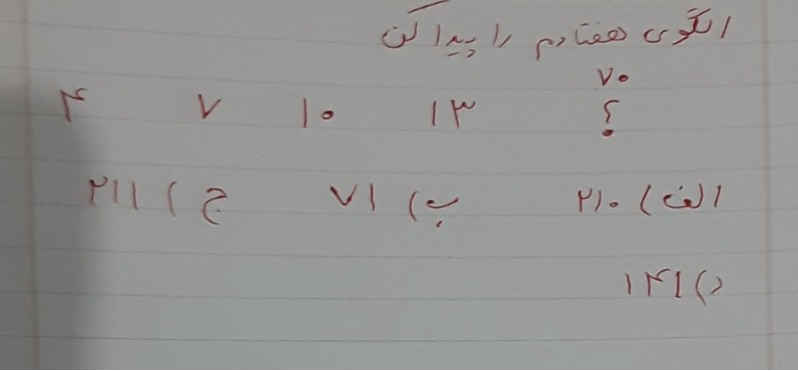 الگوی هفتادم را پیدا کن
۷۰
۴ ۷ ۱۰ ۱۳ ؟
الف) ۲۱۰ ب) ۷۱ ج) ۲۱۱
د) ۱۴۱